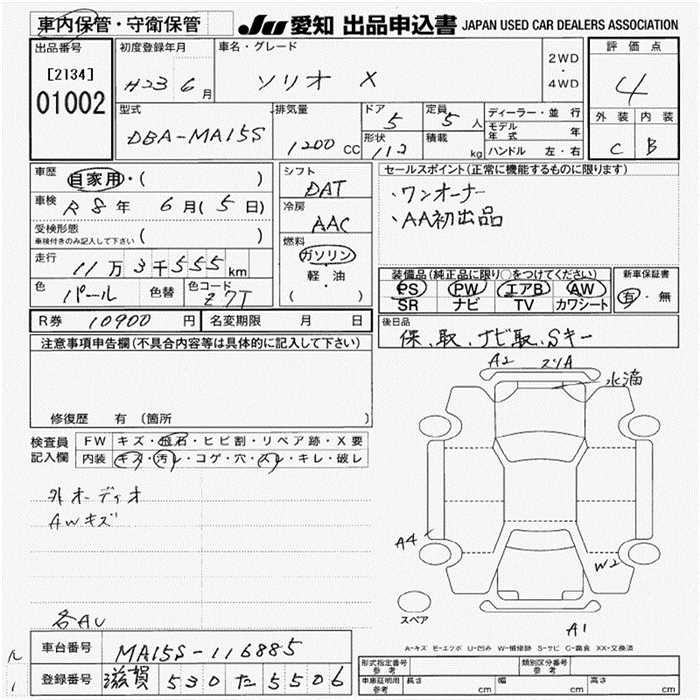 車内保管・守衛保管 JU 愛知 出品申込書 JAPAN USED CAR DEALERS ASSOCIATION
出品番号 初度登録年月 車名・グレード 評価点
[2134] H23 6月 ソリオ X 2WD・4WD 4
01002 型式 排気量 ドア 5 定員 5人 ディーラー・並行 外装 内装
DBA-MA15S 1200CC 形状 積載 kg モデル年式 年 C B
ハンドル 左・右
車歴 自家用・( ) シフト DAT セールスポイント(正常に機能するものに限ります)
車検 R8年 6月(5日) 冷房 AAC ・ワンオーナー
受検形態 ( ) ・AA初出品
車検付きのみ記入して下さい 燃料
走行 11万3千555km ガソリン 装備品(純正品に限り○をつけてください) 新車保証書
軽・油 PS PW エアB AW 有・無
色 パール 色替 色コード Z7T ( ) SR ナビ TV カワシート
R券 10900円 名変期限 月 日 後日品
注意事項申告欄(不具合内容等は具体的に記入して下さい) 保、取、ナビ取、Sキー
A2 水滴
修復歴 有 (箇所
検査員 FW キズ・飛石・ヒビ割・リペア跡・X要
記入欄 内装 キズ・汚レ・コゲ・穴・スレ・キレ・破レ
外オーディオ
AWキズ
A4 W2
スペア
各AU A1
A-キズ E-エクボ U-凹み W-補修跡 S-サビ C-腐食 XX-交換済
車台番号 MA15S-116885
登録番号 滋賀 530 た 5506
形式指定番号 参考 類別区分番号 参考
車庫証明用 参考 長さ cm 幅 cm 高さ cm